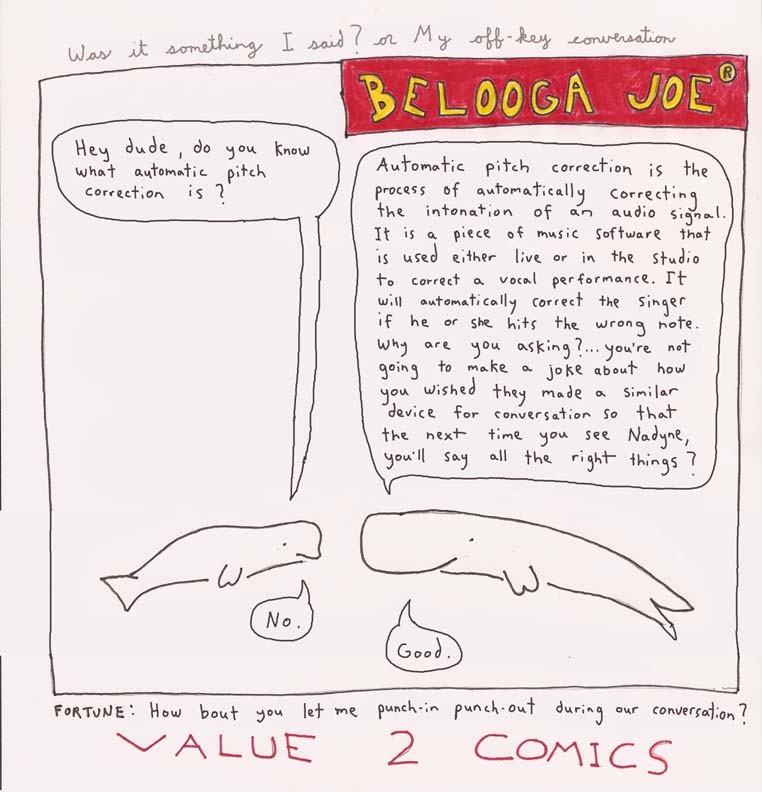 Was it something I said? or My off-key conversation
BELOOGA JOE®
Hey dude, do you know
what automatic pitch
correction is?
Automatic pitch correction is the
process of automatically correcting
the intonation of an audio signal.
It is a piece of music software that
is used either live or in the studio
to correct a vocal performance. It
will automatically correct the singer
if he or she hits the wrong note.
Why are you asking?... you're not
going to make a joke about how
you wished they made a similar
device for conversation so that
the next time you see Nadyne,
you'll say all the right things?
No.
Good.
FORTUNE: How bout you let me punch-in punch-out during our conversation?
VALUE 2 COMICS